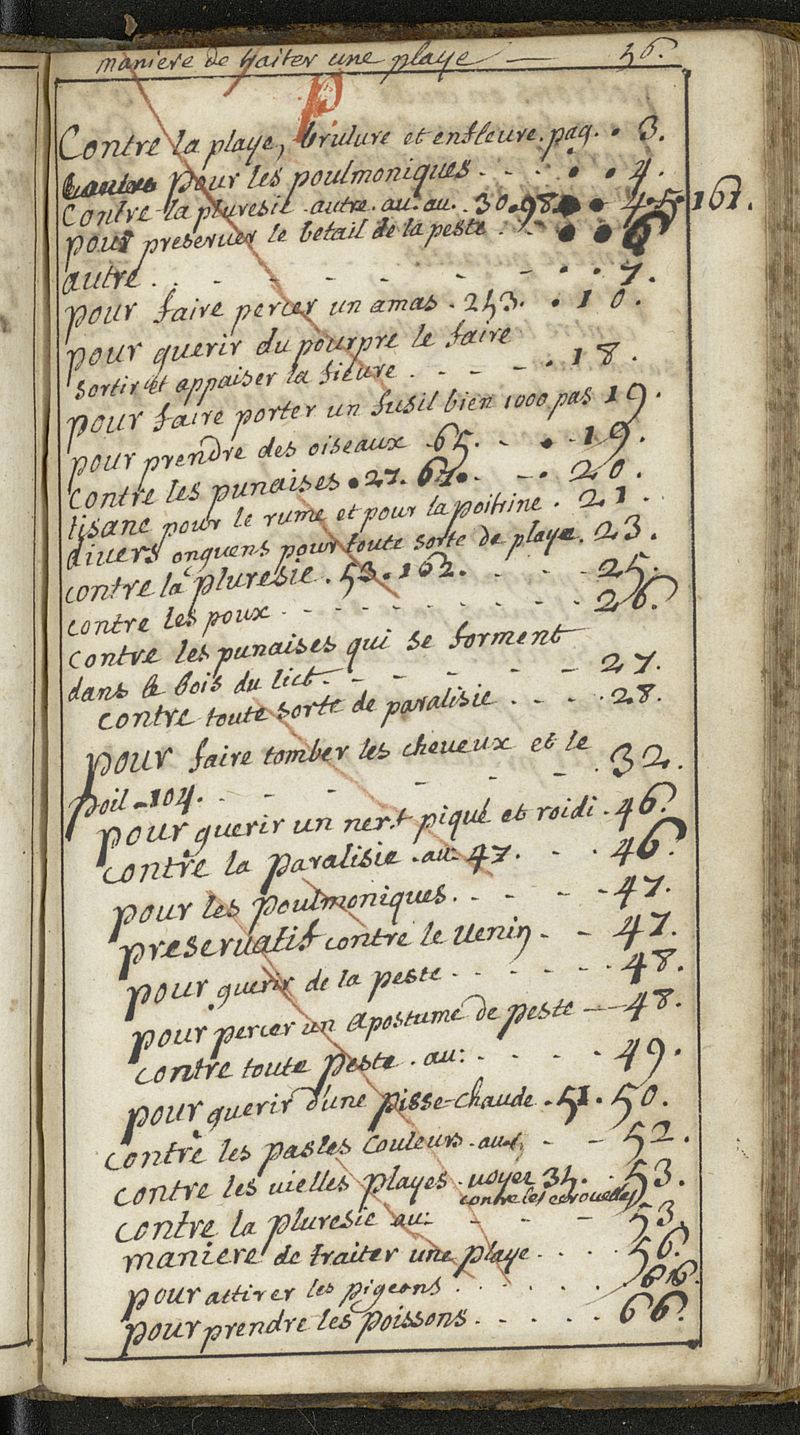 maniere de traiter une playe — 56.
P
Contre la playe, brulure et enfleure. pag. . 3.
pour les poulmoniques - - . . 4.
Contre la pluresie autre. au. au. 30. 98. 4. 5. 161.
pour preserver le betail de la peste . - . . 6
autre . - - - - - - - . . 7.
pour faire percer un amas . 253. . 10.
pour querir du pourpre le faire
sortir et appaiser la fieure . - - - . 18.
pour faire porter un fusil bien 1000 pas 19.
pour prendre des oiseaux . 65. - . - 19.
Contre les punaises . 27. 67. . - . 20.
tisane pour le rume et pour la poitrine . 21.
divers onguens pour toute sorte de playe. 23.
contre la pluresie . 53. 162. - - - 25.
contre les poux - - - - - - - - - 26.
Contre les punaises qui se forment
dans le bois du lict. - - - - - 27.
contre toute sorte de paralisie . - - . 28.
pour faire tomber les cheueux et le
poil - 104. - - - - - - . 32.
pour querir un nerf piqué et roidi . 46.
contre la paralisie . au: 47. - - . 46.
pour les poulmoniques . - - - - 47.
preservatif contre le Uenin - - 47.
pour querir de la peste . - - - - . 48.
pour percer un apostume de peste — 48.
contre toute peste . au: - - - . 49.
pour querir d'une pisse-chaude . 51. 50.
contre les pasles couleurs . au - - 52.
contre les vielles playes . voyez 35. . 53.
contre les ecrouelles
contre la pluresie au: - - - 53.
maniere de traiter une playe . . . . 56.
pour attirer les pigeons . . . . . . 66.
pour prendre les poissons . . . . . 66.